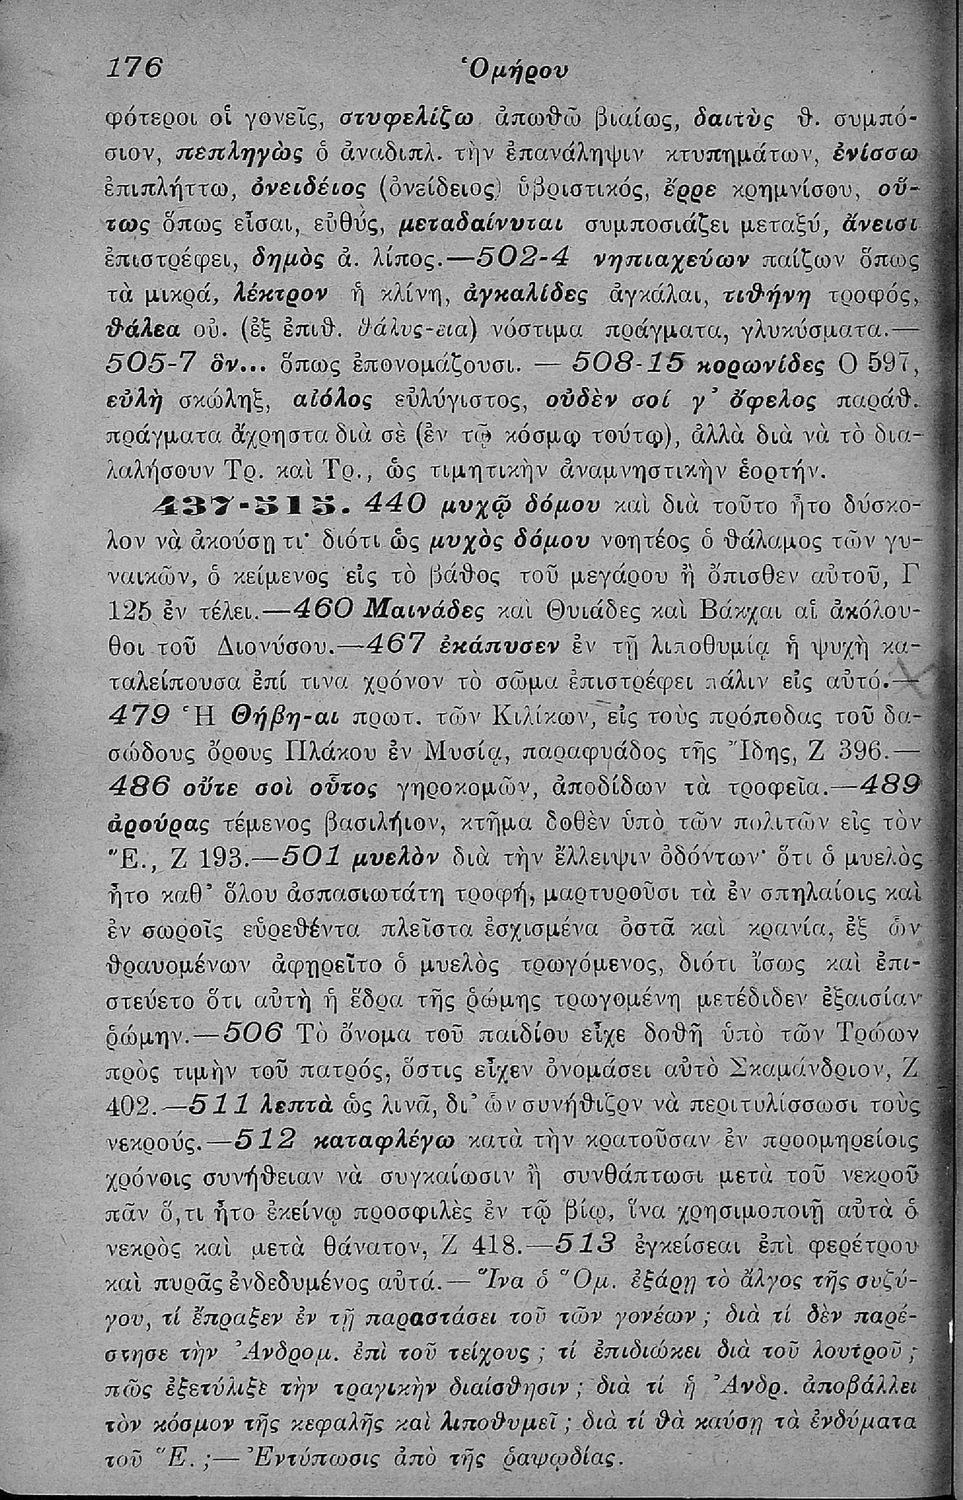 176 Ὁμήρου
φότεροι οἱ γονεῖς, στυφελίζω ἀπωθῶ βιαίως, δαιτὺς θ. συμπό-
σιον, πεπληγὼς ὁ ἀναδιπλ. τὴν ἐπανάληψιν κτυπημάτων, ἐνίσσω
ἐπιπλήττω, ὀνειδέιος (ὀνείδειος) ὑβριστικός, ἔρρε κρημνίσου, οὕ-
τως ὅπως εἶσαι, εὐθύς, μεταδαίνυται συμποσιάζει μεταξύ, ἄνεισι
ἐπιστρέφει, δημὸς ἀ. λίπος.—502-4 νηπιαχεύων παίζων ὅπως
τὰ μικρά, λέκτρον ἡ κλίνη, ἀγκαλίδες ἀγκάλαι, τιθήνη τροφός,
θάλεα οὐ. (ἐξ ἐπιθ. θάλυς-εια) νόστιμα πράγματα, γλυκύσματα.—
505-7 ὃν... ὅπως ἐπονομάζουσι. — 508-15 κορωνίδες Ο 597,
εὐλὴ σκώληξ, αἰόλος εὐλύγιστος, οὐδὲν σοί γ’ ὄφελος παράθ.
πράγματα ἄχρηστα διὰ σὲ (ἐν τῷ κόσμῳ τούτῳ), ἀλλὰ διὰ νὰ τὸ δια-
λαλήσουν Τρ. καὶ Τρ., ὡς τιμητικὴν ἀναμνηστικὴν ἑορτήν.
437-515. 440 μυχῷ δόμου καὶ διὰ τοῦτο ἦτο δύσκο-
λον νὰ ἀκούσῃ τι· διότι ὡς μυχὸς δόμου νοητέος ὁ θάλαμος τῶν γυ-
ναικῶν, ὁ κείμενος εἰς τὸ βάθος τοῦ μεγάρου ἢ ὄπισθεν αὐτοῦ, Γ
125 ἐν τέλει.—460 Μαινάδες καὶ Θυιάδες καὶ Βάκχαι αἱ ἀκόλου-
θοι τοῦ Διονύσου.—467 ἐκάπυσεν ἐν τῇ λιποθυμίᾳ ἡ ψυχὴ κα-
ταλείπουσα ἐπί τινα χρόνον τὸ σῶμα ἐπιστρέφει πάλιν εἰς αὐτό.—
479 Ἡ Θήβη-αι πρωτ. τῶν Κιλίκων, εἰς τοὺς πρόποδας τοῦ δα-
σώδους ὄρους Πλάκου ἐν Μυσίᾳ, παραφυάδος τῆς Ἴδης, Ζ 396.—
486 οὔτε σοὶ οὗτος γηροκομῶν, ἀποδίδων τὰ τροφεῖα.—489
ἀρούρας τέμενος βασιλήιον, κτῆμα δοθὲν ὑπὸ τῶν πολιτῶν εἰς τὸν
Ἕ., Ζ 193.—501 μυελὸν διὰ τὴν ἔλλειψιν ὀδόντων· ὅτι ὁ μυελὸς
ἦτο καθ’ ὅλου ἀσπασιωτάτη τροφή, μαρτυροῦσι τὰ ἐν σπηλαίοις καὶ
ἐν σωροῖς εὑρεθέντα πλεῖστα ἐσχισμένα ὀστᾶ καὶ κρανία, ἐξ ὧν
θραυομένων ἀφῃρεῖτο ὁ μυελὸς τρωγόμενος, διότι ἴσως καὶ ἐπι-
στεύετο ὅτι αὐτὴ ἡ ἕδρα τῆς ῥώμης τρωγομένη μετέδιδεν ἐξαισίαν
ῥώμην.—506 Τὸ ὄνομα τοῦ παιδίου εἶχε δοθῆ ὑπὸ τῶν Τρώων
πρὸς τιμὴν τοῦ πατρός, ὅστις εἶχεν ὀνομάσει αὐτὸ Σκαμάνδριον, Ζ
402.—511 λεπτὰ ὡς λινᾶ, δι’ ὧν συνήθιζον νὰ περιτυλίσσωσι τοὺς
νεκρούς.—512 καταφλέγω κατὰ τὴν κρατοῦσαν ἐν προομηρείοις
χρόνοις συνήθειαν νὰ συγκαίωσιν ἢ συνθάπτωσι μετὰ τοῦ νεκροῦ
πᾶν ὅ,τι ἦτο ἐκείνῳ προσφιλὲς ἐν τῷ βίῳ, ἵνα χρησιμοποιῇ αὐτὰ ὁ
νεκρὸς καὶ μετὰ θάνατον, Ζ 418.—513 ἐγκείσεαι ἐπὶ φερέτρου
καὶ πυρᾶς ἐνδεδυμένος αὐτά.—Ἵνα ὁ Ὅμ. ἐξάρῃ τὸ ἄλγος τῆς συζύ-
γου, τί ἔπραξεν ἐν τῇ παραστάσει τοῦ τῶν γονέων; διὰ τί δὲν παρέ-
στησε τὴν Ἀνδρομ. ἐπὶ τοῦ τείχους; τί ἐπιδιώκει διὰ τοῦ λουτροῦ;
πῶς ἐξετύλιξε τὴν τραγικὴν διαίσθησιν; διὰ τί ἡ Ἀνδρ. ἀποβάλλει
τὸν κόσμον τῆς κεφαλῆς καὶ λιποθυμεῖ; διὰ τί θὰ καύσῃ τὰ ἐνδύματα
τοῦ Ἕ.;—Ἐντύπωσις ἀπὸ τῆς ῥαψῳδίας.